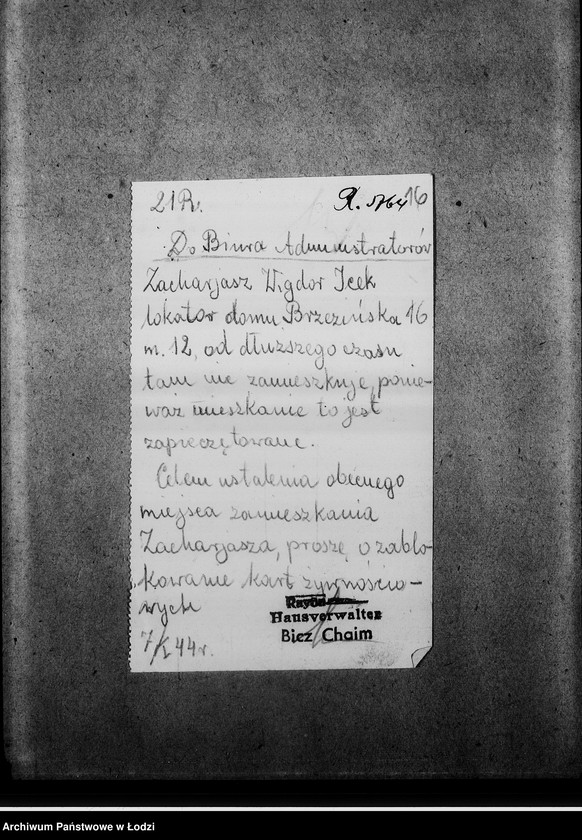 21 R.
R. 5764 16
Do Biura Administratorów
Zacharjasz Wigdor Icek
lokator domu Brzezińska 16
m. 12, od dłuższego czasu
tam nie zamieszkuje, ponie-
waż mieszkanie to jest
zapieczętowane.
Celem ustalenia obecnego
miejsca zamieszkania
Zacharjasza, proszę o zablo-
kowanie kart żywnościo-
wych
7/I 44 r.
Hausverwalter
Biez Chaim
Archiwum Państwowe w Łodzi